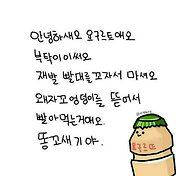 안녕하새오 요구르트애오
부탁이이써오
재발 빨대를꼬자서 마셔오
왜자꼬엉덩이를 뜯어서
빨아먹는거애오
똥꼬새기야.
요구르뜨